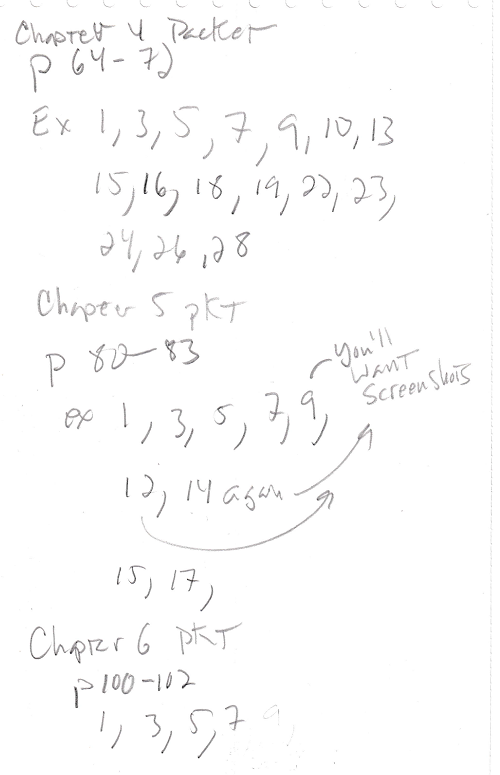 Chapter 4 Packet
p 64-72
Ex 1, 3, 5, 7, 9, 10, 13
15, 16, 18, 19, 22, 23,
24, 26, 28
Chapter 5 pkt
p 80-83
You'll
want
screenshots
ex 1, 3, 5, 7, 9,
12, 14 again
15, 17,
Chapter 6 pkt
p 100-102
1, 3, 5, 7 9,